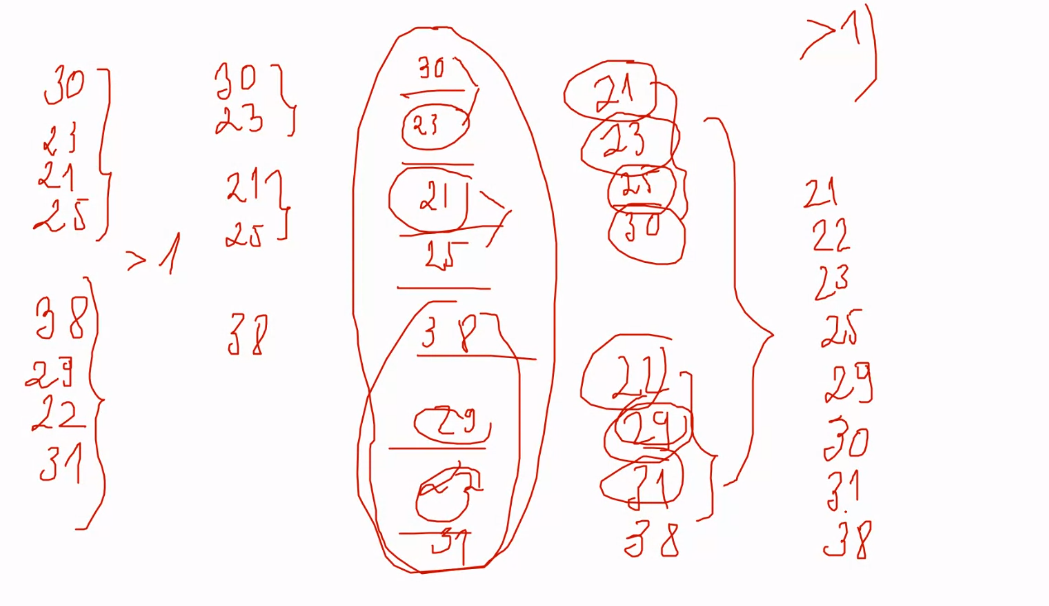 30
23
21
25
>1
38
29
22
31
30
23
21
25
38
30
23
21
25
38
29
22
31
21
23
25
30
22
29
31
38
>1)
21
22
23
25
29
30
31
38